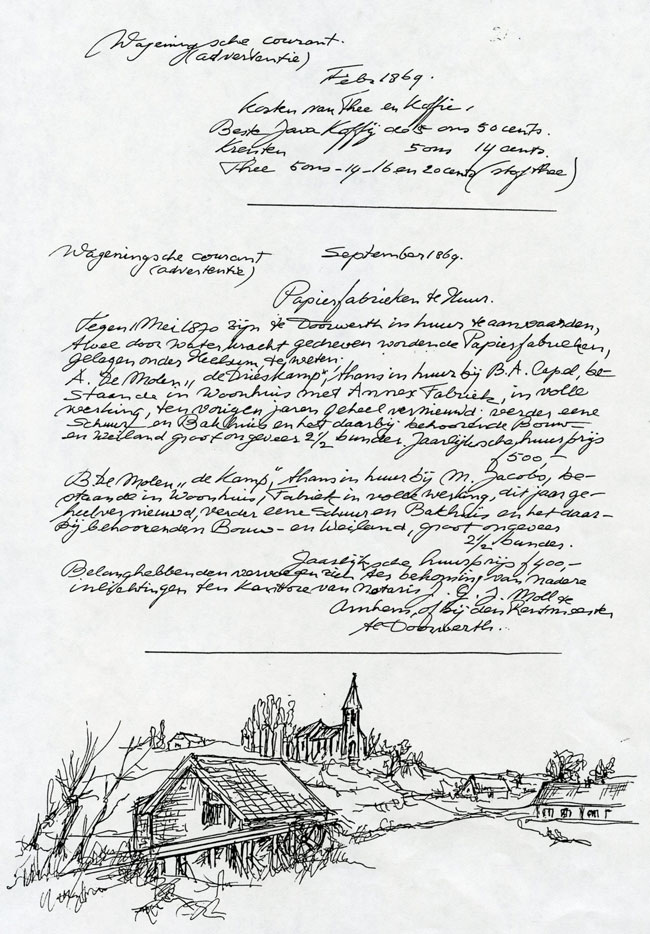 Wageningsche courant.
(advertentie)
Febr 1869.
Kosten van Thee en Koffie,
Beste Java Koffij de 5 ons 50 cents.
Krenten 5 ons 14 cents.
Thee 5 ons - 14 - 16 en 20 cents (stof thee)
Wageningsche courant
(advertentie)
September 1869.
Papierfabrieken te Huur.
Tegen 1 Mei 1870 zijn te Doorwerth in huur te aanvaarden,
twee door waterkracht gedreven wordende Papierfabrieken,
gelegen onder Heelsum te weten:
A. De Molen "de Drieskamp", thans in huur bij B.A. Capel, be-
staande in Woonhuis met Annex Fabriek, in volle
werking, ten vorigen jaren geheel vernieuwd verder eene
Schuur en Bakhuis en het daarbij behoorende Bouw-
en Weiland groot ongeveer 2½ bunder Jaarlijksche huurprijs
ƒ 500,-
B. De Molen "de Kamp", thans in huur bij M. Jacobs, be-
staande in Woonhuis, Fabriek in volle werking, dit jaar ge-
heel vernieuwd, verder eene Schuur en Bakhuis en het daar-
bij behoorenden Bouw- en Weiland, groot ongeveer
2½ bunder.
Jaarlijksche huurprijs ƒ 400,-
Belanghebbenden vervoegen zich ter bekoming van nadere
inlichtingen ten kantore van Notaris J. G. J. Moll te
Arnhem, of bij den Rentmeester
te Doorwerth.